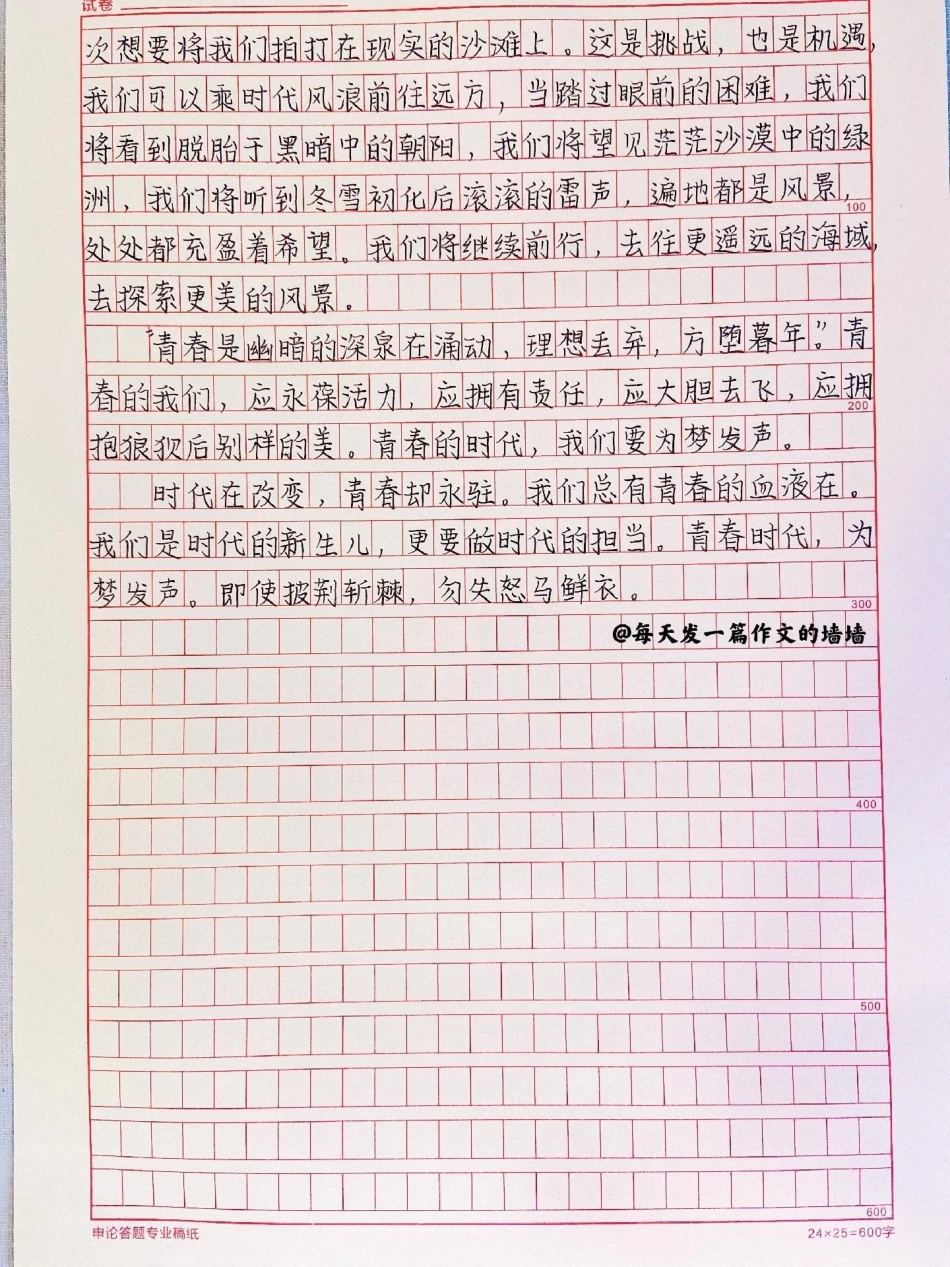 试卷
次想要将我们拍打在现实的沙滩上。这是挑战，也是机遇，
我们可以乘时代风浪前往远方，当踏过眼前的困难，我们
将看到脱胎于黑暗中的朝阳，我们将望见茫茫沙漠中的绿
洲，我们将听到冬雪初化后滚滚的雷声，遍地都是风景，
100
处处都充盈着希望。我们将继续前行，去往更遥远的海域，
去探索更美的风景。
“青春是幽暗的深泉在涌动，理想丢弃，方堕暮年。”青
春的我们，应永葆活力，应拥有责任，应大胆去飞，应拥
200
抱狼狈后别样的美。青春的时代，我们要为梦发声。
时代在改变，青春却永驻。我们总有青春的血液在。
我们是时代的新生儿，更要做时代的担当。青春时代，为
梦发声。即使披荆斩棘，勿失怒马鲜衣。
300
@每天发一篇作文的墙墙
400
500
600
申论答题专业稿纸
24×25=600字